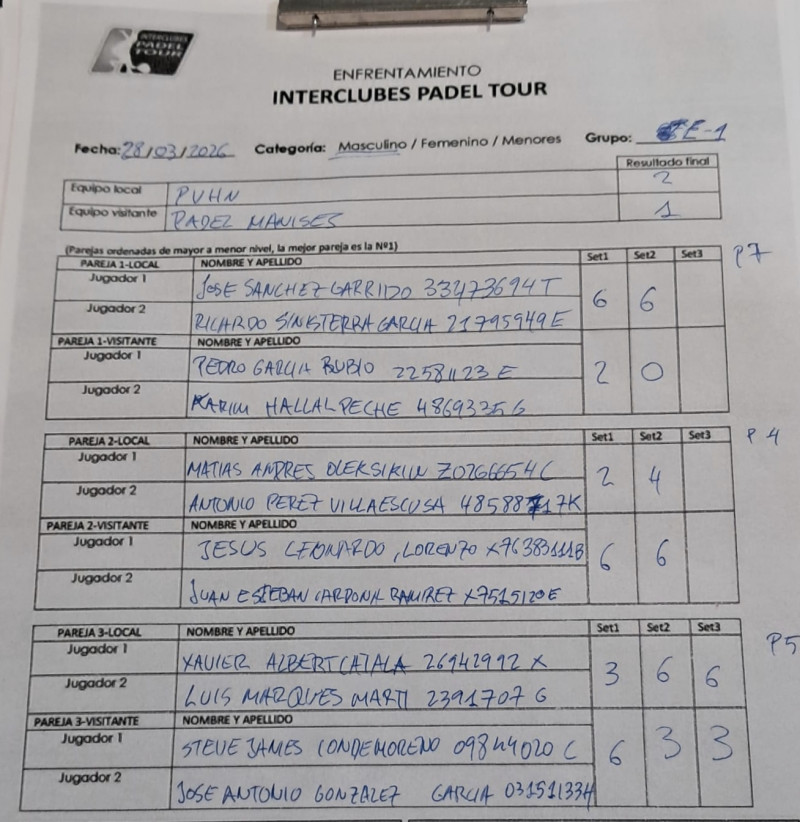 INTERCLUBES
PADEL
TOUR
ENFRENTAMIENTO
INTERCLUBES PADEL TOUR
Fecha: 28/03/2026 Categoría: Masculino / Femenino / Menores Grupo: E-1
Resultado final
Equipo local PVHN 2
Equipo visitante PADEL MANISES 1
(Parejas ordenadas de mayor a menor nivel, la mejor pareja es la Nº1)
PAREJA 1-LOCAL NOMBRE Y APELLIDO Set1 Set2 Set3 P7
Jugador 1 JOSE SANCHEZ GARRIDO 33473694T 6 6
Jugador 2 RICARDO SINISTERRA GARCIA 21795949E
PAREJA 1-VISITANTE NOMBRE Y APELLIDO
Jugador 1 PEDRO GARCIA RUBIO 22581123E 2 0
Jugador 2 KARIM HALLAL PECHE
PAREJA 2-LOCAL NOMBRE Y APELLIDO Set1 Set2 Set3 P4
Jugador 1 MATIAS ANDRES Z0266654C 2 4
Jugador 2 ANTONIO PEREZ VILLAESCUSA
PAREJA 2-VISITANTE NOMBRE Y APELLIDO
Jugador 1 JESUS LEONARDO, LORENZO X76383111B 6 6
Jugador 2 JUAN ESTEBAN CARDONA RAMIREZ X7515120E
PAREJA 3-LOCAL NOMBRE Y APELLIDO Set1 Set2 Set3 P5
Jugador 1 XAVIER ALBERT CATALA 26942992X 3 6 6
Jugador 2 LUIS MARQUES MARTI 2391707G
PAREJA 3-VISITANTE NOMBRE Y APELLIDO
Jugador 1 STEVE JAMES CONDE MORENO 09844020C 6 3 3
Jugador 2 JOSE ANTONIO GONZALEZ GARCIA 03151133H